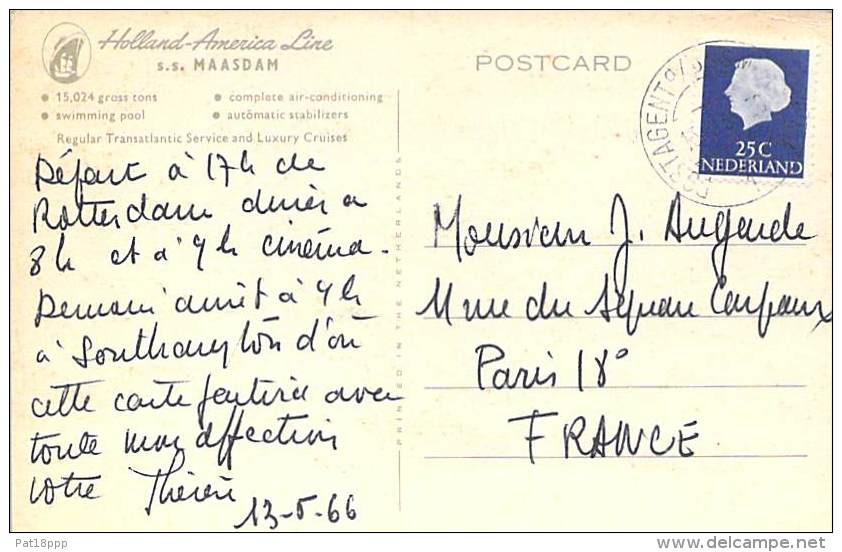 Holland-America Line
s.s. MAASDAM
• 15,024 gross tons
• complete air-conditioning
• swimming pool
• automatic stabilizers
Regular Transatlantic Service and Luxury Cruises
Départ à 17h de
Rotterdam diner a
8h et à 9h cinéma.
Demain arrêt à 9h
à Southampton d'où
cette carte partira avec
toute mon affection
votre Thérèse
13-5-66
PRINTED IN THE NETHERLANDS
POSTCARD
POSTAGENT
25C
NEDERLAND
Monsieur J. Augende
11 rue du Square Carpeaux
Paris 18°
FRANCE
Pat18ppp
delcampe.net